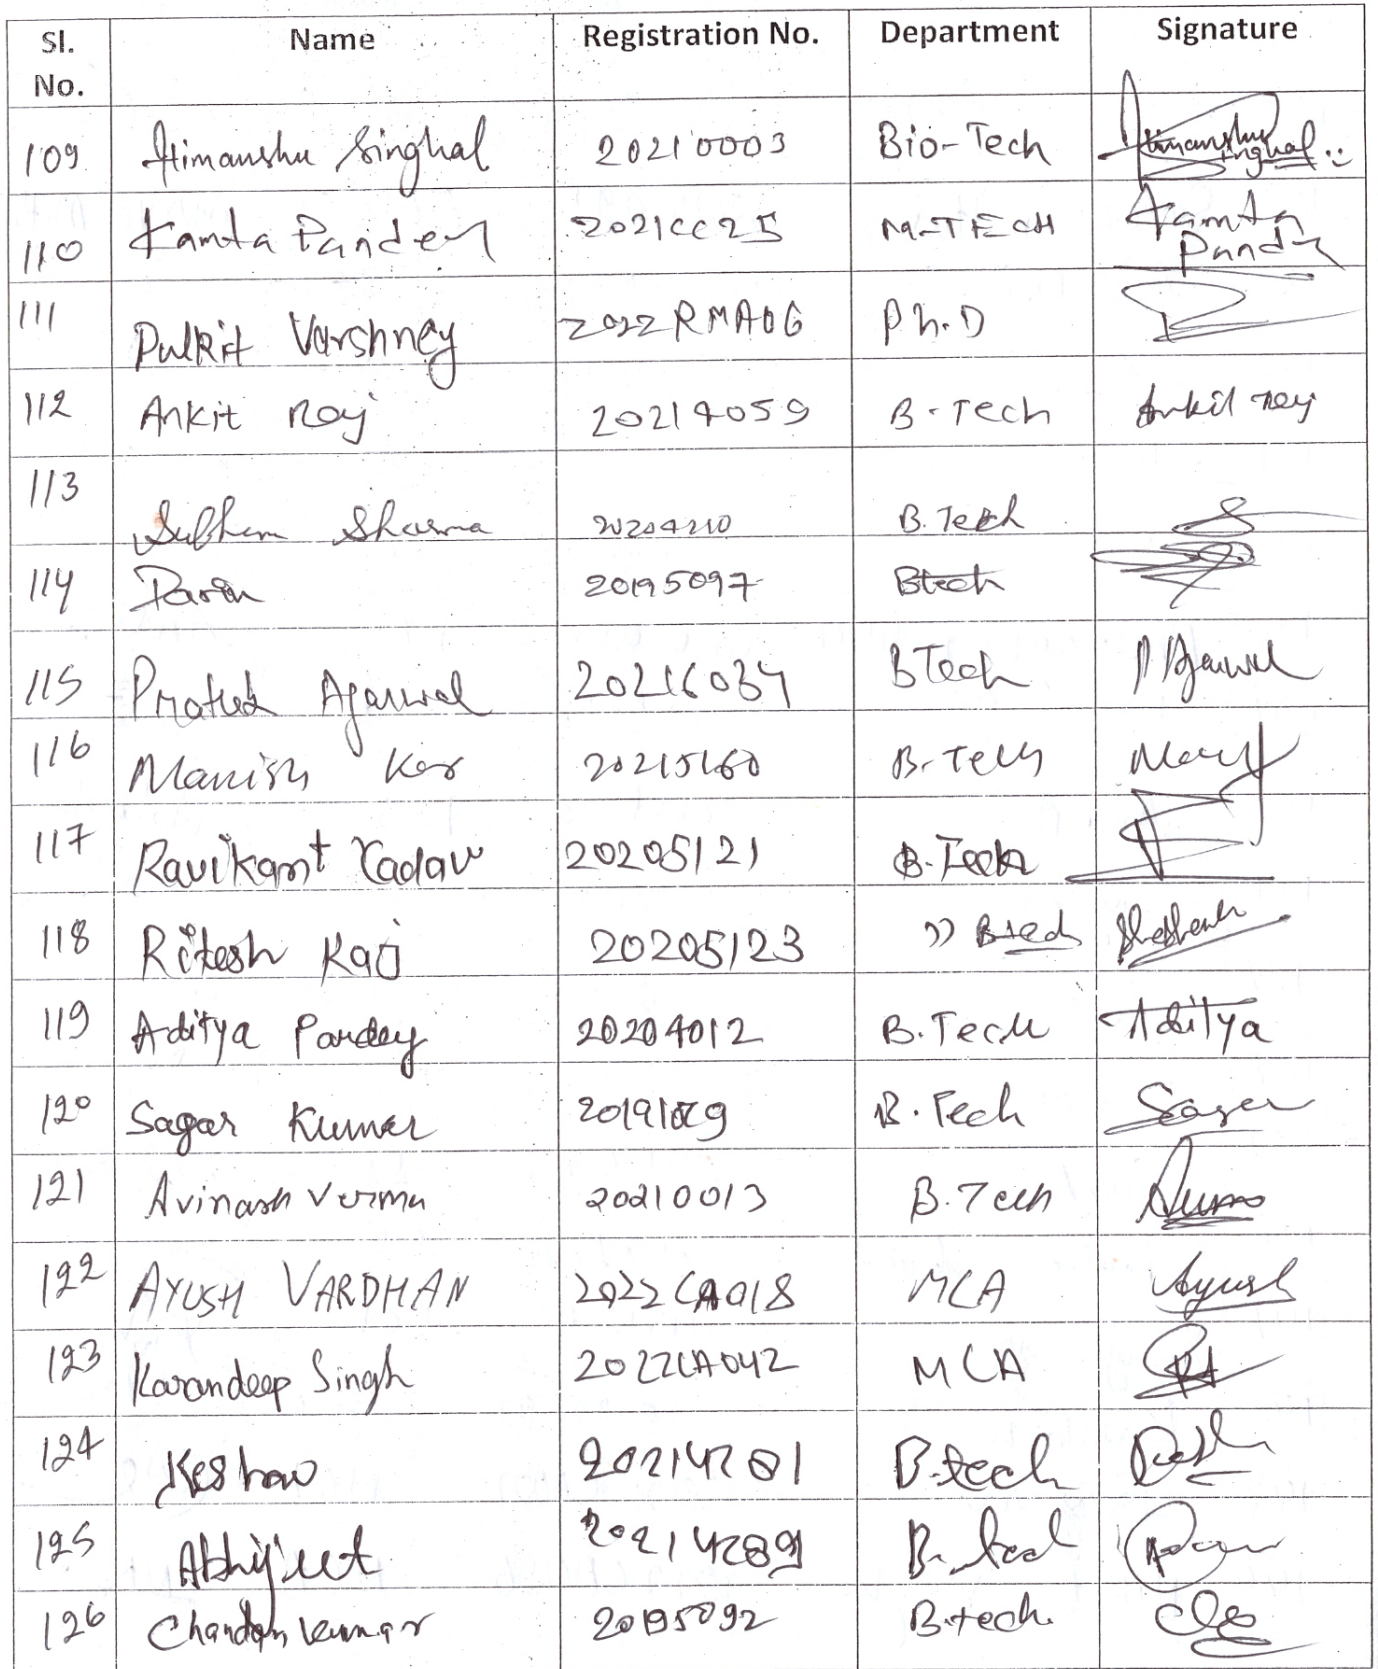 Sl. No. Name Registration No. Department Signature
109 Himanshu Singhal 20210003 Bio-Tech Himanshu Singhal
110 Kamta Pandey 2021CC25 M-TECH Kamta Pandy
111 Pulkit Varshney 2022RMA06 Ph.D
112 Ankit Raj 20214059 B-Tech Ankit Raj
113 Subham Sharma B.Tech
114 20195097 Btech
115 Prateek Agarwal 20216034 BTech P Agarwal
116 Manish 20215160 B-Tech
117 Ravikant Yadav 20205121 B.Tech
118 Ritesh Raj 20205123 )) Btech
119 Aditya Pandey 20204012 B.Tech Aditya
120 Sagar Kumar B.Tech Sagar
121 Avinash Verma 20210013 B.Tech
122 AYUSH VARDHAN 2022CA018 MCA Ayush
123 Karandeep Singh 2022CA042 MCA
124 Keshav B.tech
125 Abhijeet B.tech
126 Chandan Kumar 20195092 B.tech.